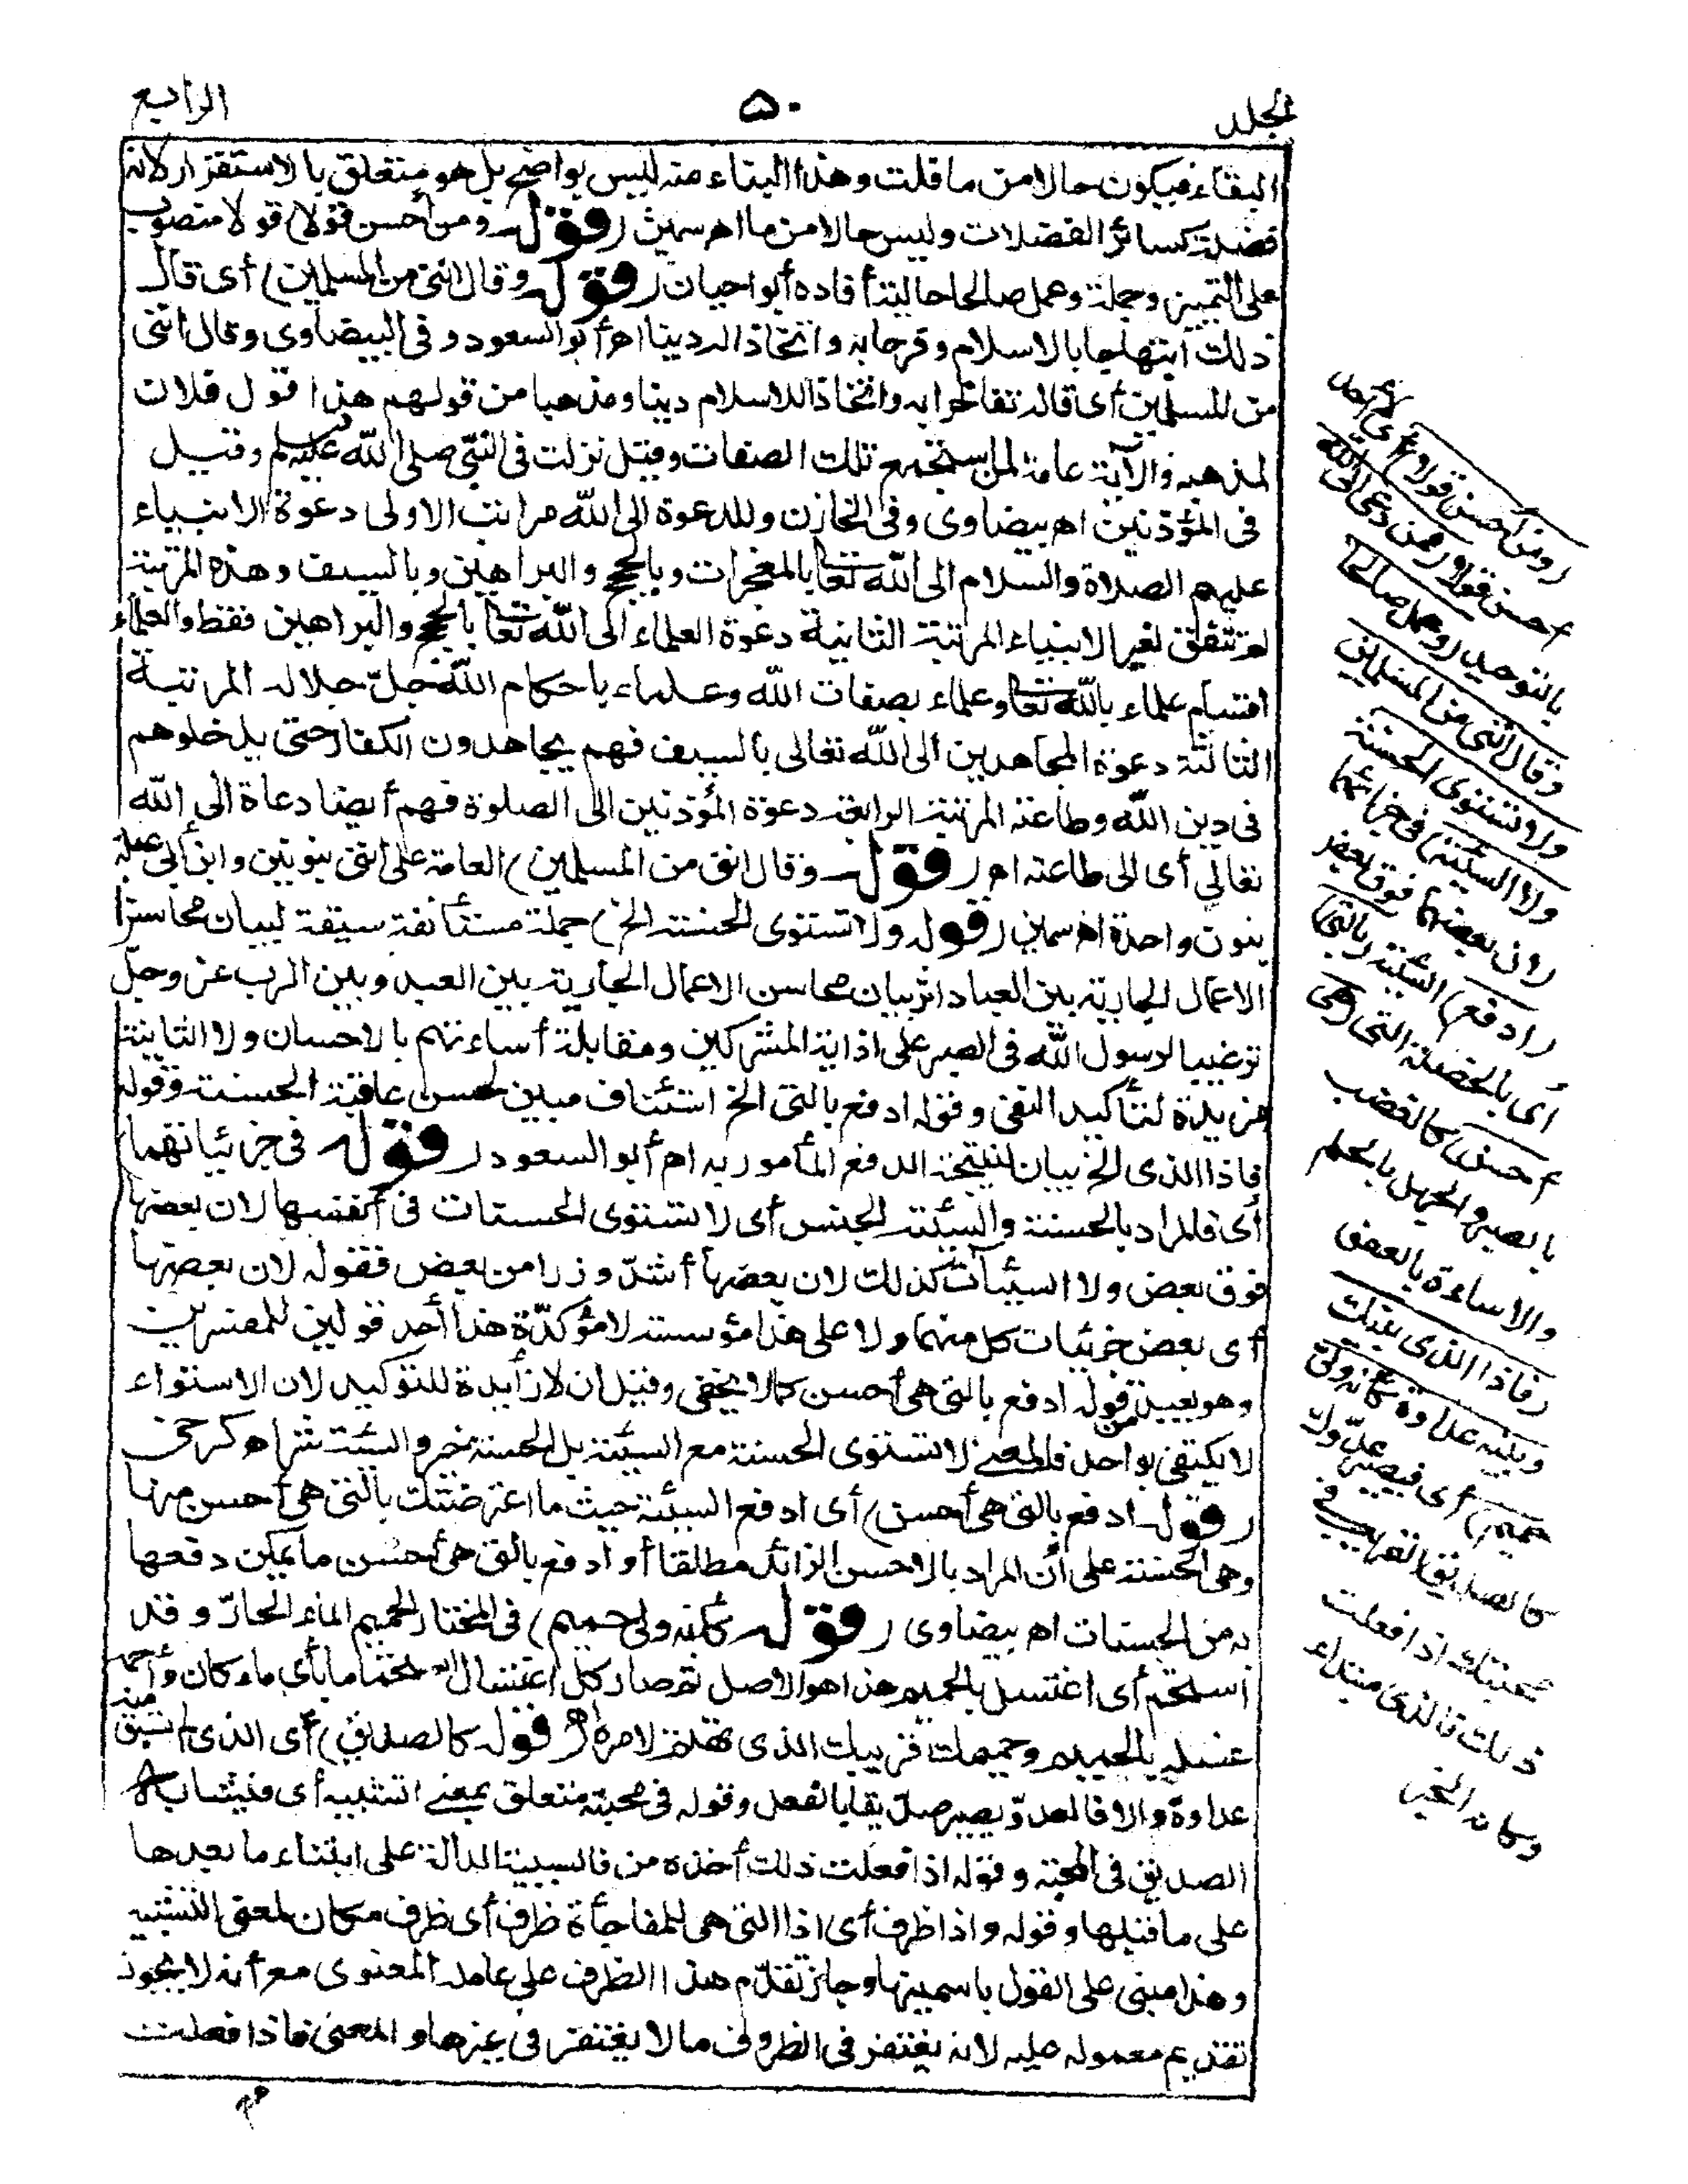 المجلد
٥٠
الرابع
البقاء فيكون حالا من ما قلت وهذا البناء منه ليس بواضح بل هو متعلق بالاستقرار لانه
فضلة كسائر الفضلات وليس حالا من ما اهـ سمين (قوله ومن أحسن قولا) قولا منصوب
على التمييز وجملة وعمل صالحا حالية أفاده أبو حيان (قوله وقال انني من المسلمين) أي قال
ذلك ابتهاجا بالاسلام وفرحا به واتخاذا له دينا اهـ أبو السعود وفي البيضاوي وقال انني
من المسلمين أي قاله تفاخرا به واتخاذا للاسلام دينا ومذهبا من قولهم هذا قول فلان
لمذهبه والآية عامة لمن استجمع تلك الصفات وقيل نزلت في النبي صلى الله عليه وسلم وقيل
في المؤذنين اهـ بيضاوي وفي الخازن وللدعوة الى الله مراتب الاولى دعوة الانبياء
عليهم الصلاة والسلام الى الله تعالى بالمعجزات وبالحجج والبراهين وبالسيف وهذه المرتبة
لم تتفق لغير الانبياء المرتبة الثانية دعوة العلماء الى الله تعالى بالحجج والبراهين فقط والعلماء
اقسام علماء بالله تعالى وعلماء بصفات الله وعلماء باحكام الله جل جلاله المرتبة
الثالثة دعوة المجاهدين الى الله تعالى بالسيف فهم يجاهدون الكفار حتى يدخلوهم
في دين الله وطاعته المرتبة الرابعة دعوة المؤذنين الى الصلوة فهم أيضا دعاة الى الله
تعالى أي الى طاعته اهـ (قوله وقال انني من المسلمين) العامة على انني بنونين وابن أبي عبلة
بنون واحدة اهـ سمين (قوله ولا تستوي الحسنة الخ) جملة مستأنفة سيقة لبيان محاسن
الاعمال الجارية بين العباد اثر بيان محاسن الاعمال الجارية بين العبد وبين الرب عز وجل
ترغيبا لرسول الله في الصبر على اذاية المشركين ومقابلة أساءتهم بالاحسان ولا الثانية
مزيدة لتأكيد النفي وقوله ادفع بالتي الخ استئناف مبين لحسن عاقبة الحسنة وقوله
فاذا الذي الخ بيان لنتيجة الدفع المأمور به اهـ أبو السعود (قوله في جزئياتهما)
أي فالمراد بالحسنة والسيئة الجنس أي لا تستوي الحسنات في أنفسها لان بعضها
فوق بعض ولا السيئات كذلك لان بعضها أشد وزرا من بعض فقوله لان بعضها
أي بعض جزئيات كل منهما ولا على هذا مؤسسة لا مؤكدة هذا أحد قولين للمفسرين
وهو بعيد من قوله ادفع بالتي هي أحسن كما لا يخفى وقيل ان لا زائدة للتوكيد لان الاستواء
لا يكتفى بواحد فالمعنى لا تستوي الحسنة مع السيئة بل الحسنة خير والسيئة شر اهـ كرخي
(قوله ادفع بالتي هي أحسن) أي ادفع السيئة حيث ما اعترضتك بالتي هي أحسن منها
وهي الحسنة على أن المراد بالاحسن الزائد مطلقا أو ادفع بالتي هي أحسن ما يمكن دفعها
به من الحسنات اهـ بيضاوي (قوله كأنه ولي حميم) في المختار الحميم الماء الحار وقد
استحم أي اغتسل بالحميم هذا هو الاصل ثم صار كل اغتسال استحماما بأي ماء كان وأحم
غسله بالحميم وحميمك قريبك الذي تهتم لامره اهـ (قوله كالصديق) أي الذي لم تسبق منه
عداوة والا فالعدو يصير صديقا بالفعل وقوله في محبته متعلق بمعنى التشبيه أي فيشابه
الصديق في المحبة وقوله اذا فعلت ذلك أخذه من فا السببية الدالة على ابتناء ما بعدها
على ما قبلها وقوله واذا ظرف أي اذا التي هي للمفاجأة ظرف أي ظرف مكان لمعنى التشبيه
وهذا مبني على القول باسميتها وجاز تقدم هذا الظرف على عامله المعنوي مع أنه لا يجوز
تقديم معموله عليه لانه يغتفر في الظروف ما لا يغتفر في غيرها والمعنى فاذا فعلت
(ومن أحسن قولا) أي لا أحد
أحسن قولا (ممن دعى الى الله)
بالتوحيد (وعمل صالحا
وقال انني من المسلمين
ولا تستوي الحسنة
ولا السيئة) في جزئياتهما
لان بعضهما فوق بعض
(ادفع) السيئة (بالتي)
أي بالخصلة التي (هي
أحسن) كالغضب
بالصبر والجهل بالحلم
والاساءة بالعفو
(فاذا الذي بينك
وبينه عداوة كأنه ولي
حميم) أي فيصير عدوك
كالصديق القريب في
محبتك اذا فعلت
ذلك فالذي مبتداء
وكانه الخبر